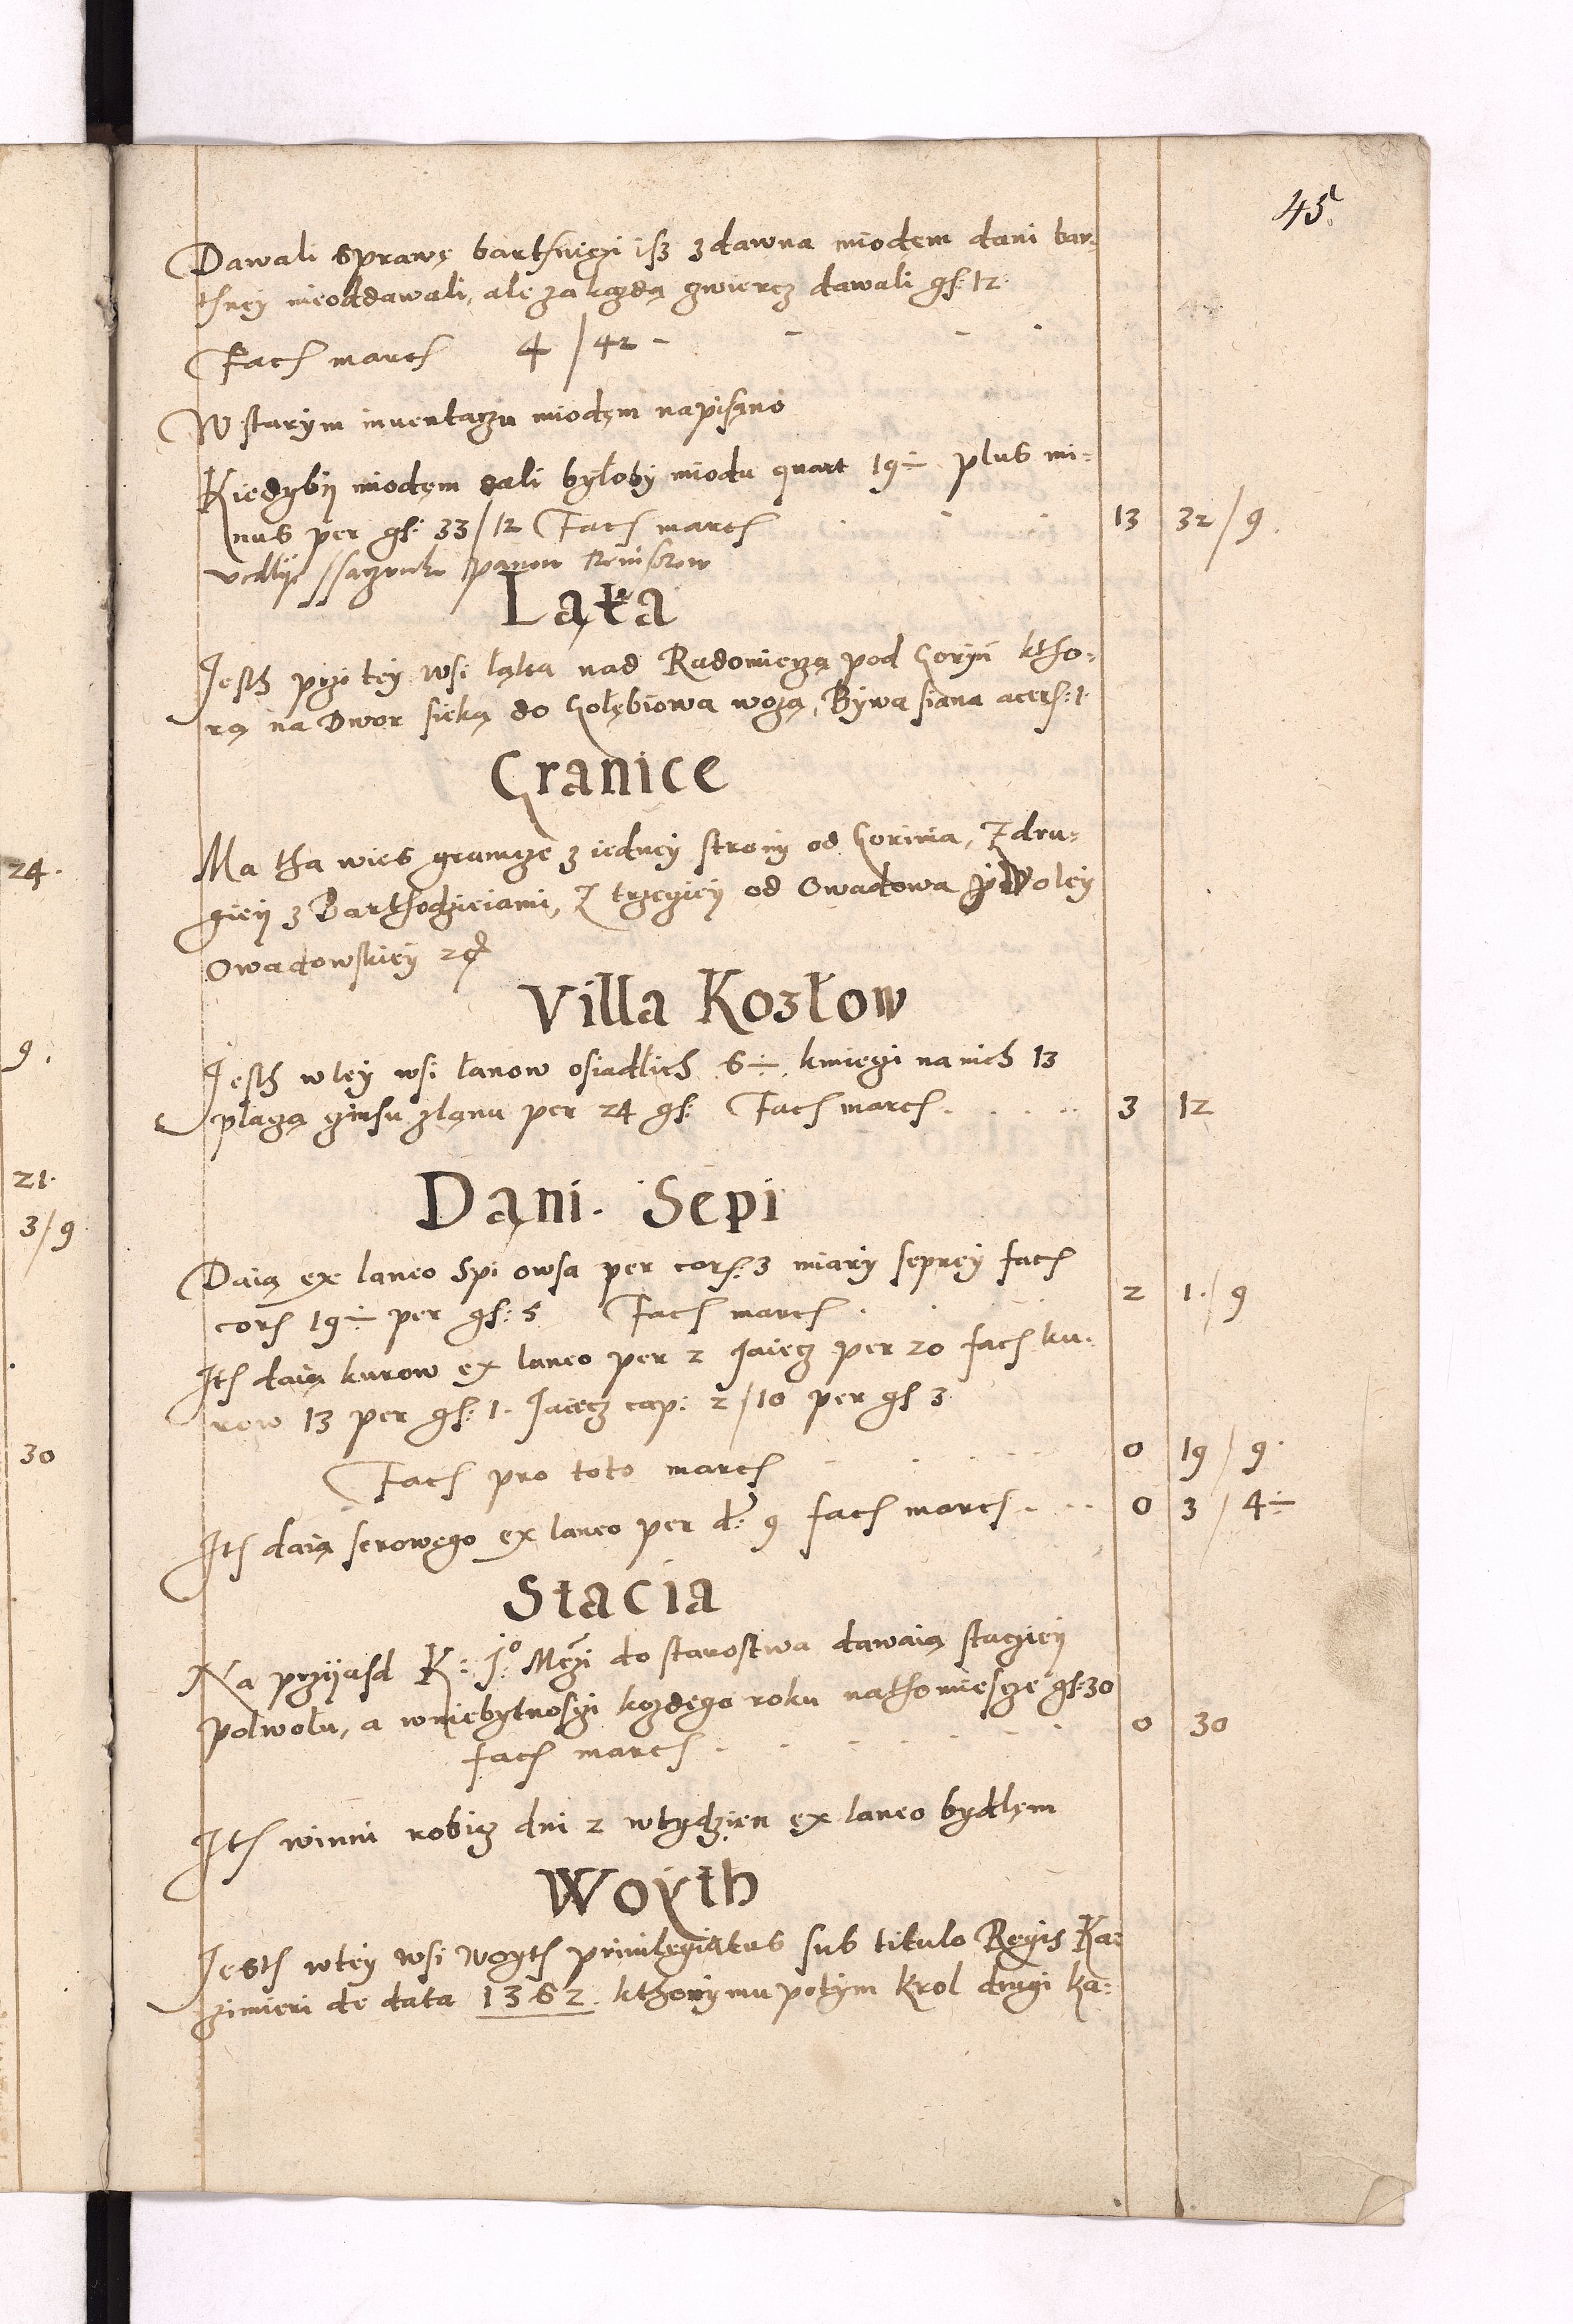 45
Dawali sprawę barthnięzi isz zdawna miodem dani bar-
thnęÿ nieoddawali, ale za kazdą zwiercz dawali gs: 12
Facs marcs 4 / 42 -
W starym inuentarzu miodęm napisano
Kiedybÿ miodęm dali byłoby miodu quart 19÷ plus mi-
nus per gs: 33/12 Facs marcs 13 32/9.
vedlÿe ssaczunku panow Rewisorow
Ląka
Jesth przi teÿ wsi ląka nad Radomierzą pod Goryn ktho-
rą na Dwor sieką do Gołębiowa wozą, Bÿwa siana acers: 1
Granice
Ma tha wies granicze z iedneÿ stronÿ od Gorinia, Z dru-
gieÿ z Barthodzieiami, Z trzecieÿ od Owadowa ÿ Woleÿ
Owadowskieÿ
Villa Kozłow
Jesth wteÿ wsi łanow osiadlich 6÷. kmiezi na nich 13
płazą zinsu złanu per 24 gs: Facs marcs. 3 12
Dąni. Sepi
Daią ex laneo Spi owsa per cors: 3 miarÿ sepneÿ facs
cors 19÷ per gs: 5 Facs marcs 2 1/9
Its daią kurow ex laneo per 2 Jaiecz per 20 facs ku-
row 13 per gs: 1. Jaiecz cap: 2/10 per gs 3
Facs pro toto marcs 0 19/9
Its daią serowęgo ex laneo per d: 9 facs marcs 0 3/4÷
Stacia
Na przÿasd K: J:o Mczi do starostwa dawaią staczieÿ
połwołu, a wniebytnosci kozdego roku nathomiescze gs: 30
facs marcs 0 30
Its winni robicz dni 2 wtydzien ex laneo bydlęm
Woÿth
Jesth wteÿ wsi woÿth priuilęgiatus sub titulo Regis Ka-
zimieri de data 1362 kthorÿmu potÿm krol drugi ka-
24.
9.
21.
3/9
30